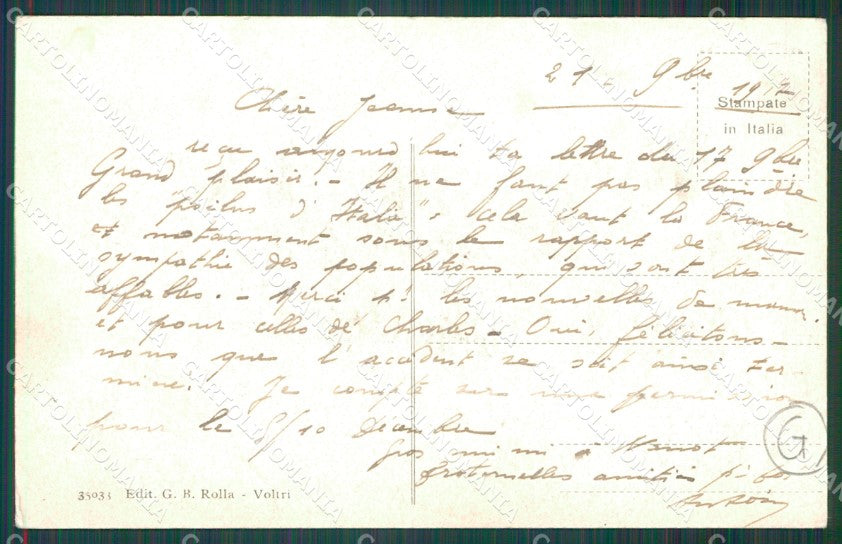 21 9bre 1917
Stampate
in Italia
Chère Jeanne
reçu aujourd'hui ta lettre du 17 9bre
Grand plaisir. - Il ne faut pas plaindre
les "poilus d'Italie", cela vaut la France,
et notamment sous le rapport de la
sympathie des populations, qui sont très
affables. - Merci pr les nouvelles de maman
et pour celles de Charles - Oui, félicitons-
nous que l'accident se soit ainsi ter-
miné. Je compte sur une permission
pour le 8/10 décembre
Gros mimi à Nanot
fraternelles amitiés pr
35033 Edit. G. B. Rolla - Voltri
CARTOLINOMANIA